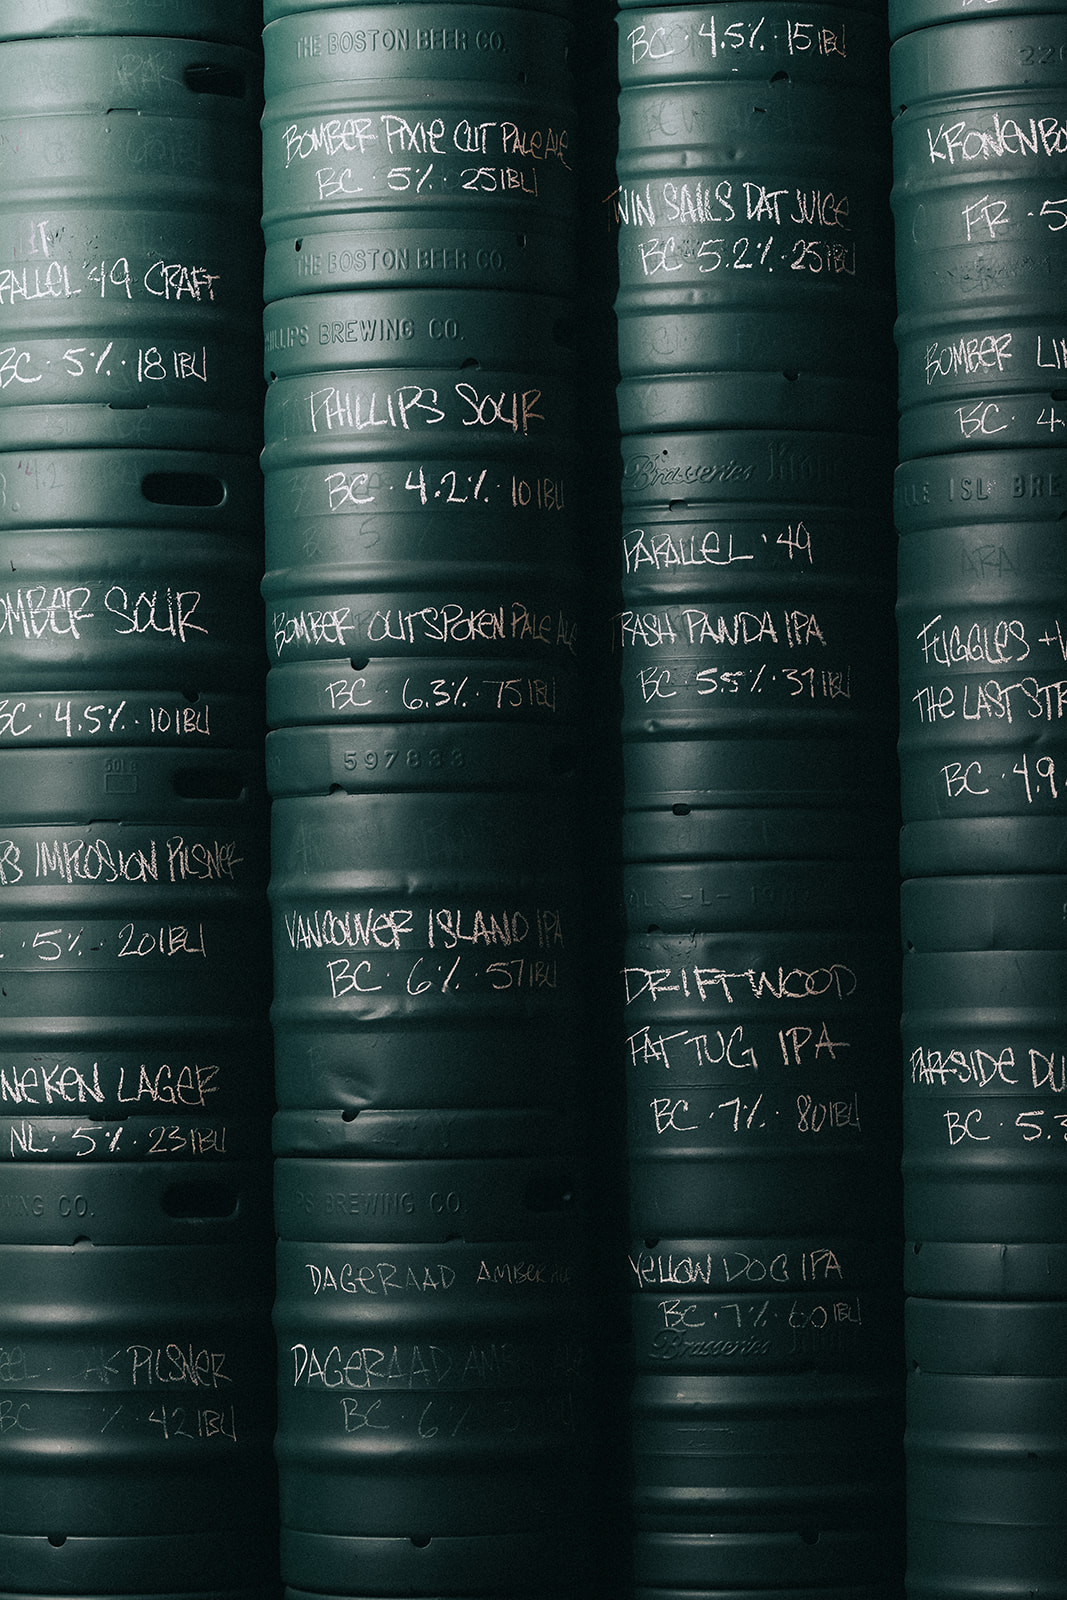 PARALLEL '49 CRAFT
BC · 5% · 18 IBU
SOUR
BC · 4.5% · 10 IBU
50L
IMPLOSION PILSNER
5% · 20 IBU
LAGER
NL · 5% · 23 IBU
CO.
PILSNER
BC % · 42 IBU
THE BOSTON BEER CO.
BOMBER PIXIE CUT PALE ALE
BC · 5% · 25 IBU
THE BOSTON BEER CO.
PHILLIPS BREWING CO.
PHILLIPS SOUR
BC · 4.2% · 10 IBU
BOMBER OUTSPOKEN PALE ALE
BC · 6.3% · 75 IBU
597833
VANCOUVER ISLAND IPA
BC · 6% · 57 IBU
BREWING CO.
DAGERAAD AMBER
DAGERAAD
BC · 6%
BC · 4.5% · 15 IBU
TWIN SAILS DAT JUICE
BC · 5.2% · 25 IBU
Brasseries
PARALLEL '49
TRASH PANDA IPA
BC · 5.5% · 37 IBU
DRIFTWOOD
FAT TUG IPA
BC · 7% · 80 IBU
YELLOW DOG IPA
BC · 7% · 60 IBU
Brasseries
FR · 5
BOMBER
BC · 4.
ISL
FUGGLES +
THE LAST
BC · 4.9
PARKSIDE
BC · 5.3